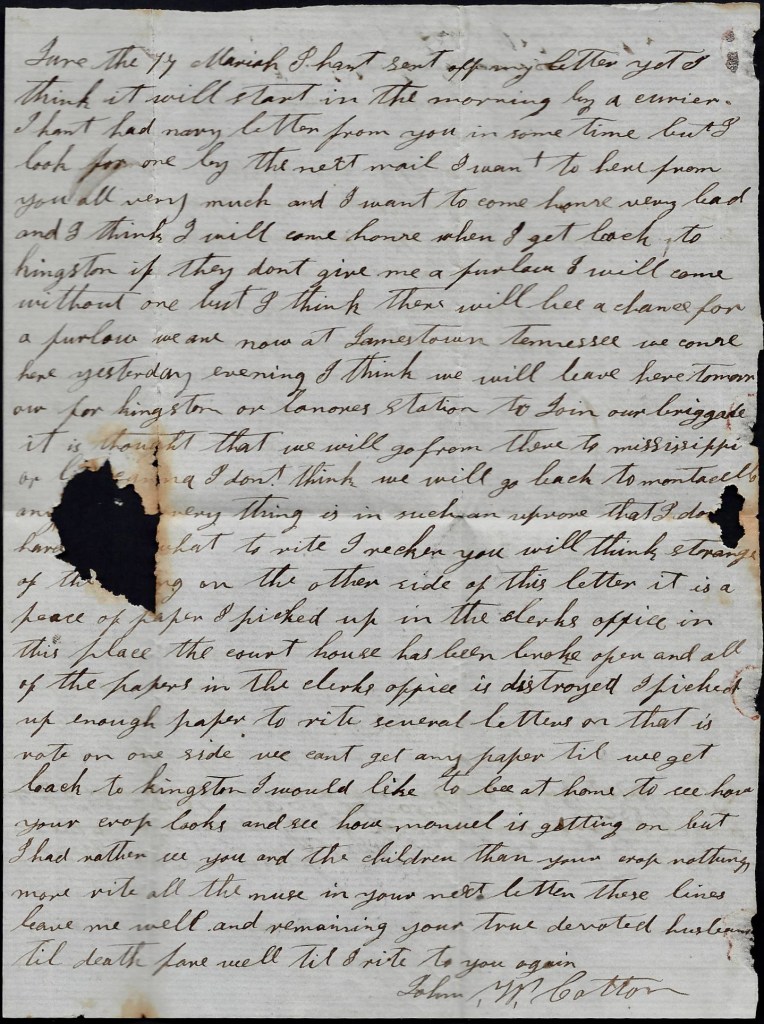 June the 17 Mariah I hant sent off my letter yet I
think it will start in the morning by a curier.
I hant had nary letter from you in some time but I
look for one by the nett mail I want to here from
you all very much and I want to come home very bad
and I think I will come home when I get back to
kingston if they dont give me a furlow I will come
without one but I think there will bee a chance for
a furlow we are now at Jamestown tennessee we come
here yesterday evening I think we will leave here tomorr
ow for kingston or lanores station to Join our briggade
it is thought that we will go from there to mississippi
or I dont think we will go back to montacello
every thing is in such an uprore that I
what to rite I recken you will think strange
of on the other side of this letter it is a
peace of paper I picked up in the clerks office in
this place the court house has been broke open and all
of the papers in the clerks office is distroyed I picked
up enough paper to rite several letters on that is
rote on one side we cant get any paper til we get
back to kingston I would like to bee at home to see how
your crop looks and see how manuel is getting on but
I had rather see you and the children than your crop nothing
more rite all the nuse in your next letter these lines
leave me well and remaining your true devoted husband
til death fare well til I rite to you again
John W Cotton